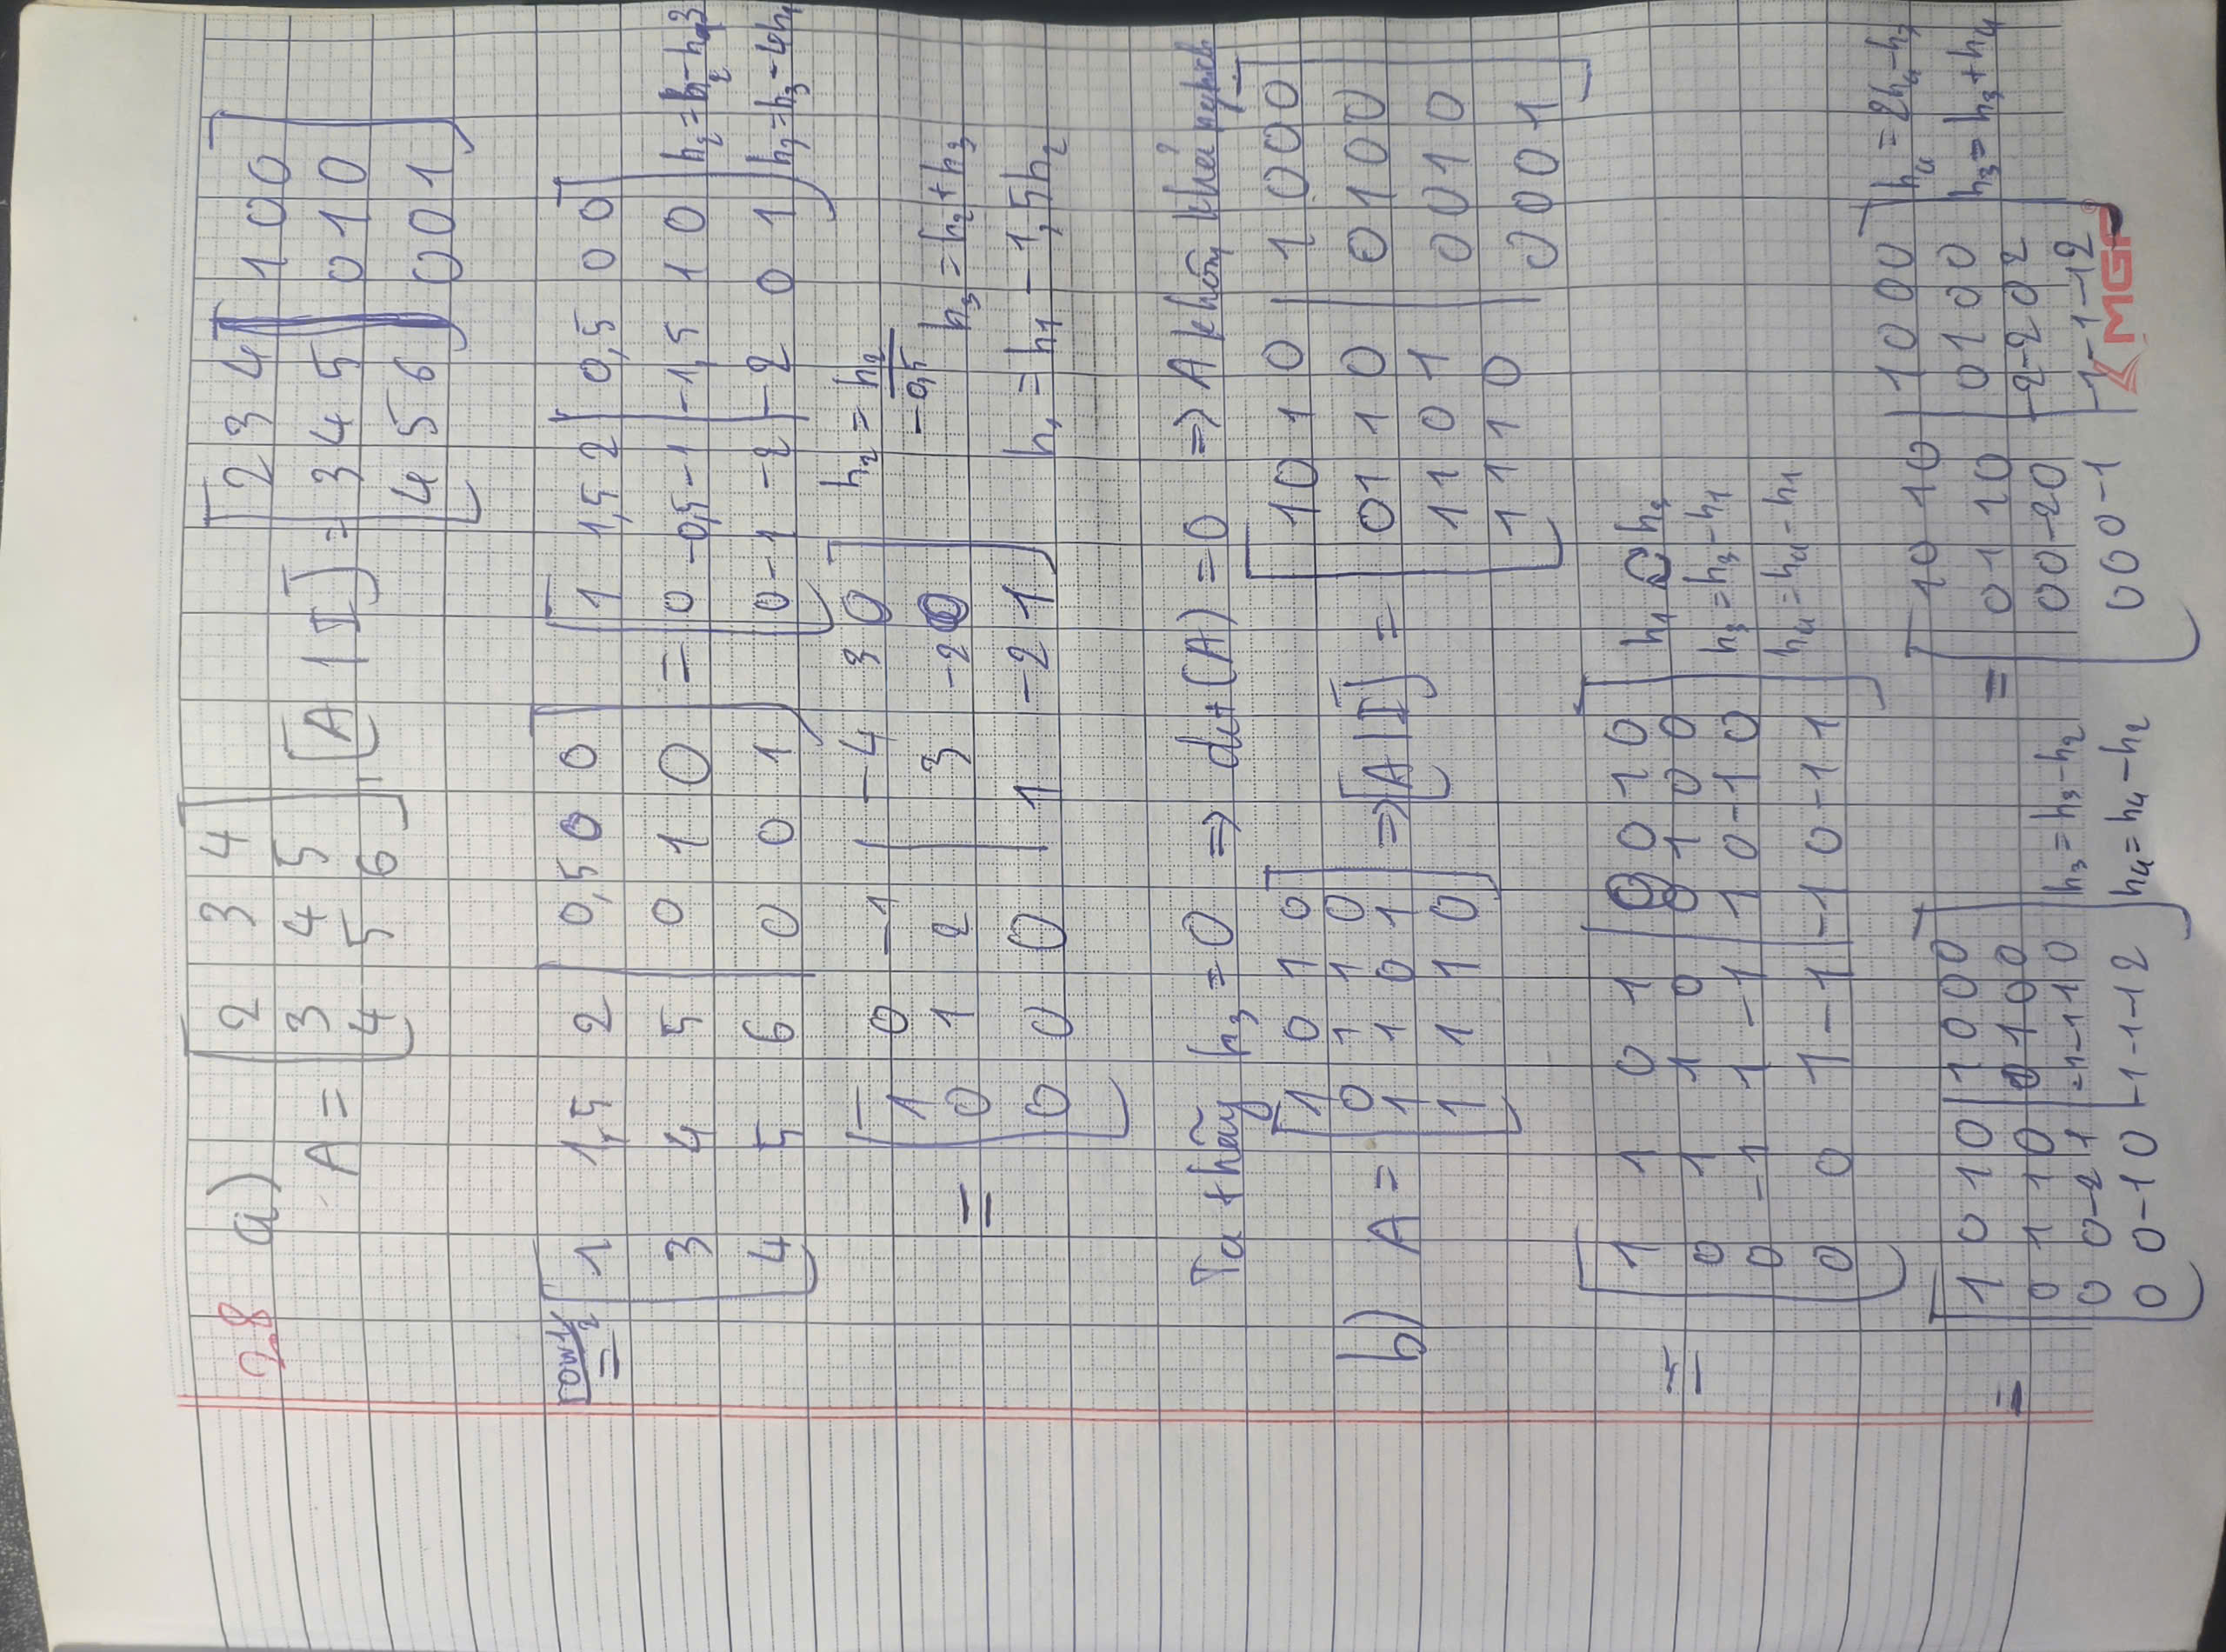 2.8 a)
A = [2 3 4
3 4 5
4 5 6], [A | I] = [2 3 4 | 1 0 0
3 4 5 | 0 1 0
4 5 6 | 0 0 1]
row1/2
= [1 1,5 2 | 0,5 0 0
3 4 5 | 0 1 0
4 5 6 | 0 0 1]
= [1 1,5 2 | 0,5 0 0
0 -0,5 -1 | -1,5 1 0
0 -1 -2 | -2 0 1]
h3 = h3 - 4h1
= [1 0 -1 | -4 3 0
0 1 2 | 3 -2 0
0 0 0 | 1 -2 1]
h2 = h2/-0,5
h3 = h2 + h3
h1 = h1 - 1,5h2
Ta thấy h3 = 0 => det(A) = 0 => A không khả nghịch
b) A = [1 0 1 0
0 1 1 0
1 1 0 1
1 1 1 0] => [A | I] = [1 0 1 0 | 1 0 0 0
0 1 1 0 | 0 1 0 0
1 1 0 1 | 0 0 1 0
1 1 1 0 | 0 0 0 1]
= [1 1 0 1 | 0 0 1 0
0 1 1 0 | 0 1 0 0
0 -1 1 -1 | 1 0 -1 0
0 0 1 -1 | -1 0 -1 1]
h3 = h3 - h1
h4 = h4 - h1
= [1 0 1 0 | 1 0 0 0
0 1 1 0 | 0 1 0 0
0 0 -2 1 | -1 -1 1 0
0 0 -1 0 | -1 -1 -1 2]
h3 = h3 - h2
h4 = h4 - h2
= [1 0 1 0 | 1 0 0 0
0 1 1 0 | 0 1 0 0
0 0 -2 0 | -2 -2 0 2
0 0 0 -1 | -1 -1 -1 2
h4 = 2h4 - h3
h3 = h3 + h4
MGF